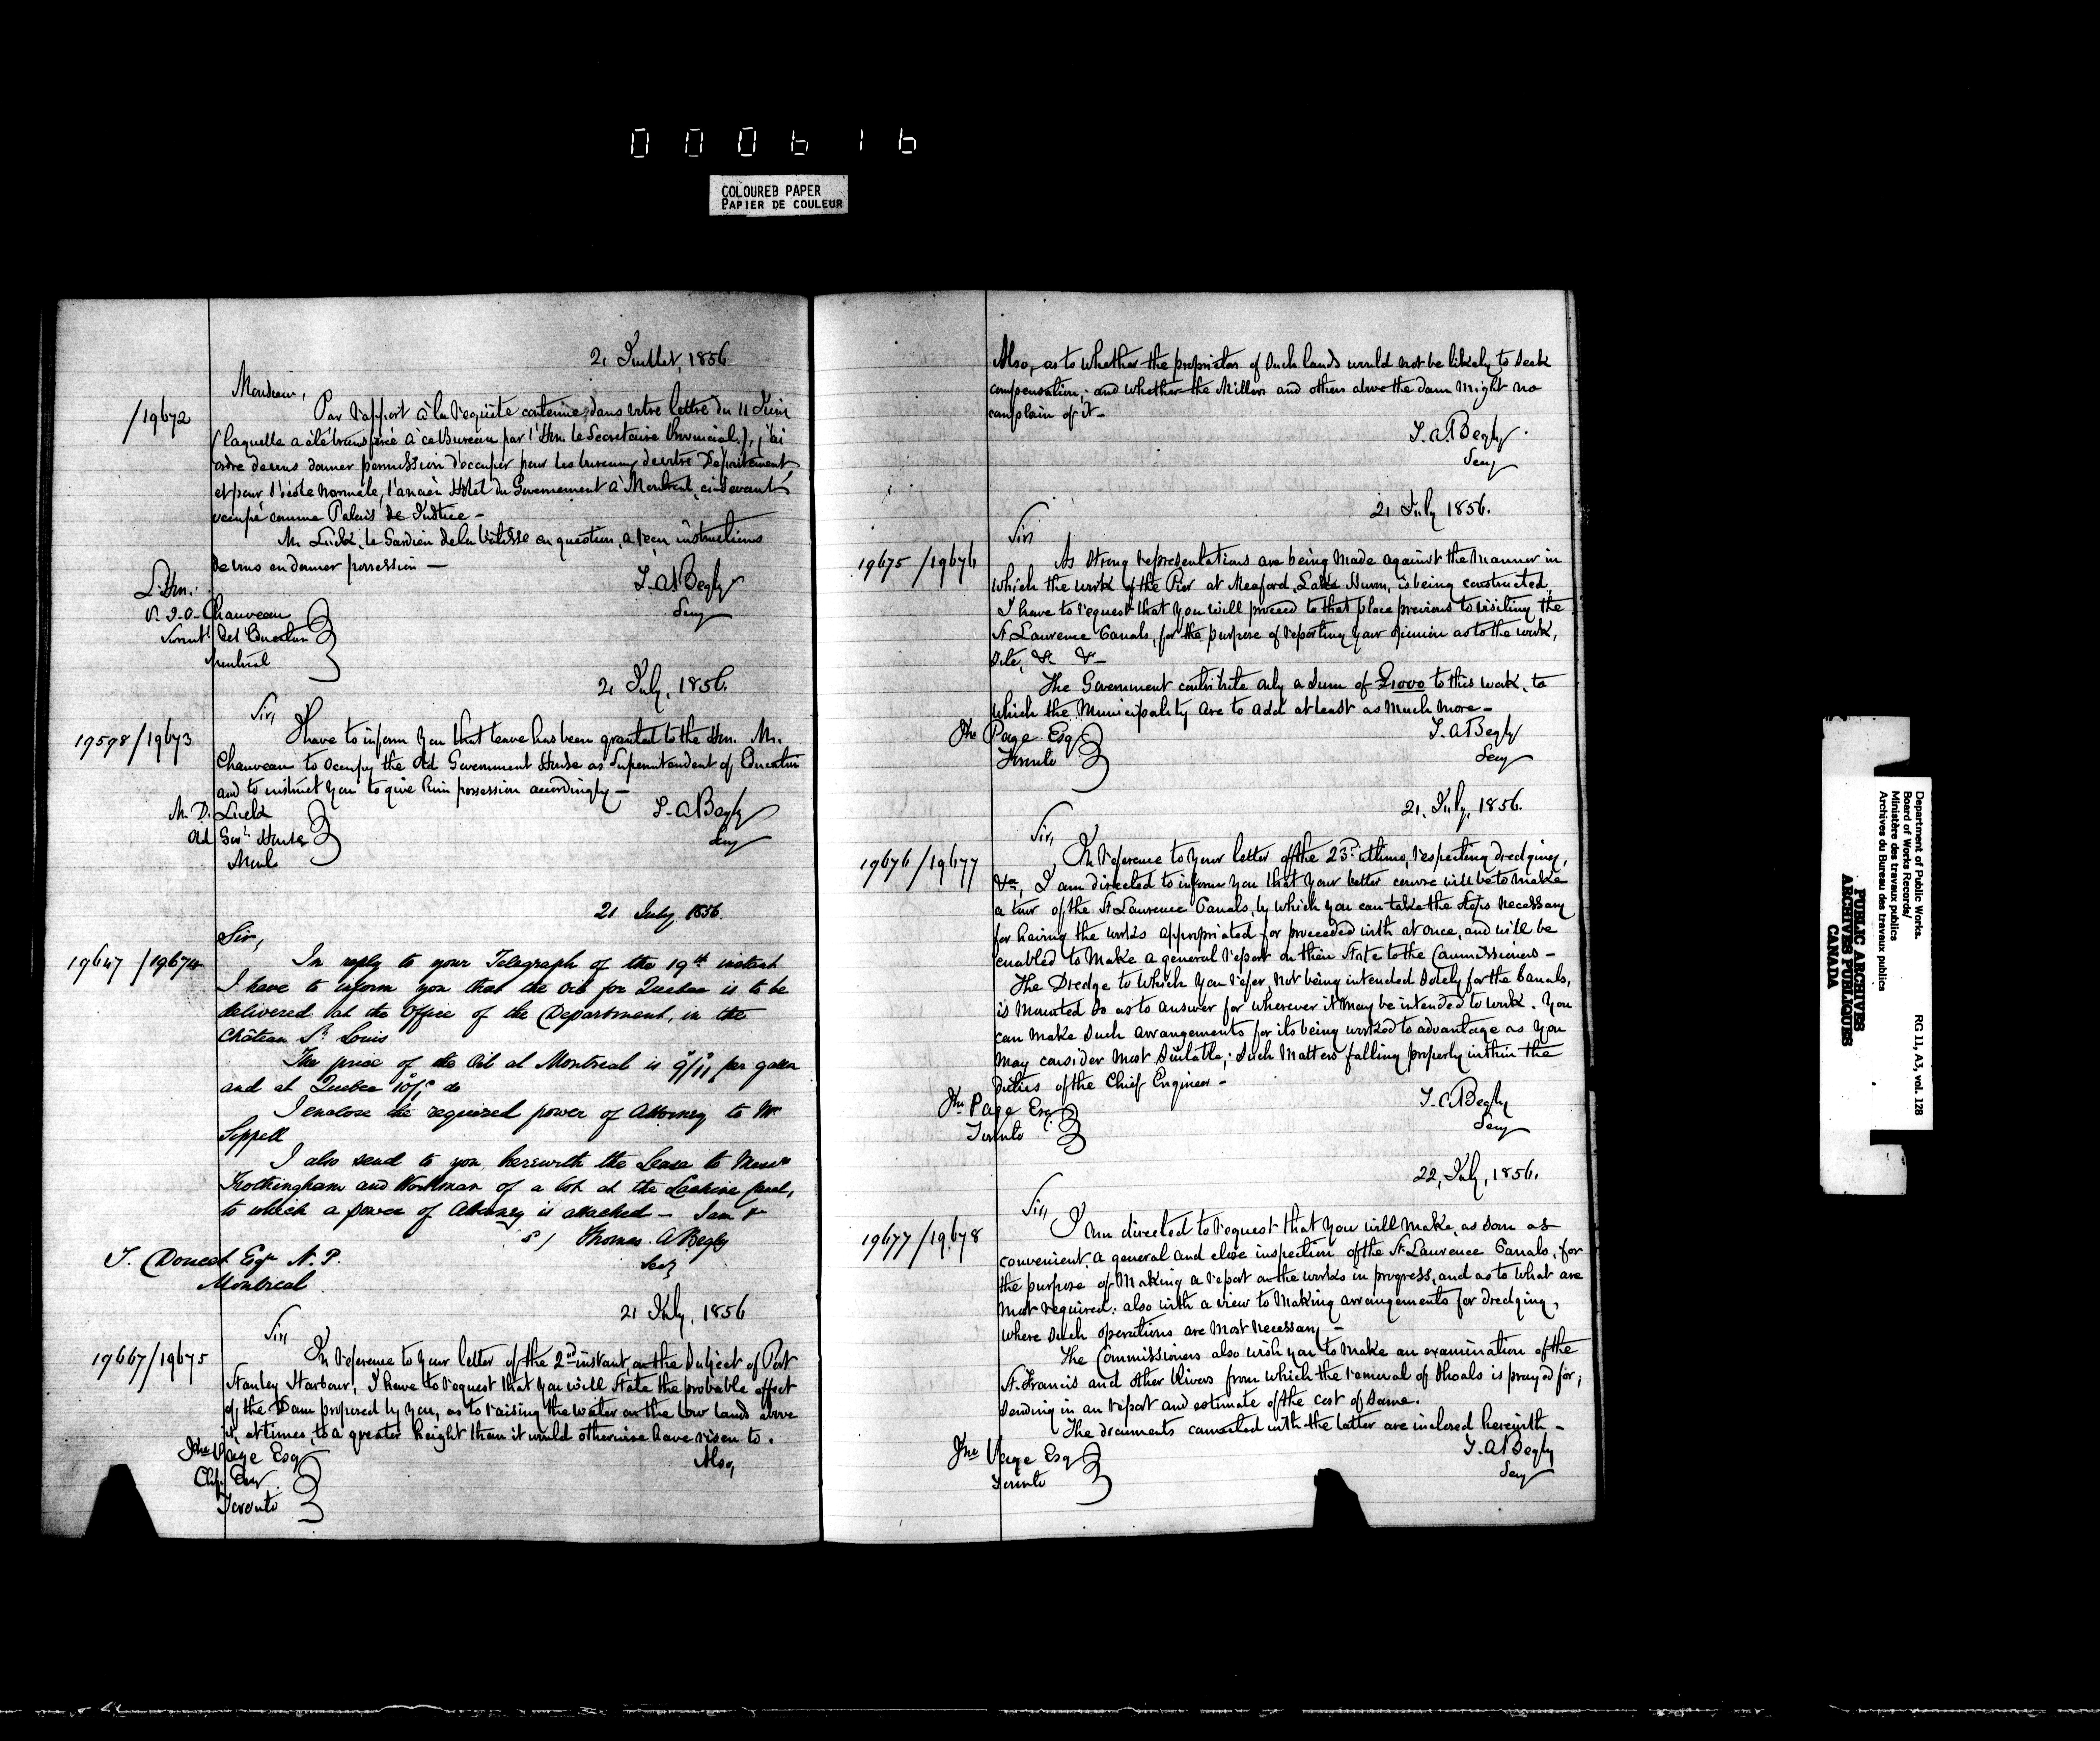 000616
COLOURED PAPER
PAPIER DE COULEUR
21 Juillet, 1856
Monsieur,
/19672
Par rapport à la requête contenue dans votre lettre du 11 Juin
(laquelle a été transférée à ce Bureau par l'Hon. le Secretaire Provincial), j'ai
ordre de vous donner permission d'occuper pour les bureaux de votre Département
et pour l'école normale, l'ancien Hotel du Gouvernement à Montreal, ci-devant
occupé comme Palais de Justice -
M. Luck, le Gardien de la bâtisse en question, a reçu instructions
de vous en donner possession -
L'Hon.
P. J. O. Chauveau
Surint. de l'Education
Montréal
T. A. Begly
Secy
21 July, 1856.
Sir,
19598/19673
I have to inform you that leave has been granted to the Hon. Mr.
Chauveau to occupy the Old Government House as Superintendent of Education
and to instruct you to give him possession accordingly -
M. D. Luck
Old Govt. House
Montl.
T. A Begly
Secy
21 July 1856
Sir,
19647 /19674
In reply to your Telegraph of the 19th instant
I have to inform you that the Oil for Quebec is to be
delivered at the Office of the Department, in the
Château St Louis
The price of the Oil at Montreal is 9/11 per gallon
and at Quebec 10/ do
I enclose the required power of Attorney to Mr
Seppell
I also send to you herewith the Lease to Messrs
Frothingham and Workman of a lot at the Lachine Canal,
to which a power of Attorney is attached - I am &
s/ Thomas A Begly
Secy
T. Doucet Esqr N. P.
Montreal
21 July, 1856
Sir,
19667/19675
In reference to your letter of the 2nd instant, on the subject of Port
Stanley Harbour, I have to request that you will State the probable effect
of the Dam proposed by you, as to raising the water on the low lands above
it, at times, to a greater height than it would otherwise have risen to.
Jno Page Esq
Chf. Engr.
Toronto
Also,
Also, as to whether the proprietors of such lands would not be likely to seek
compensation; and whether the Millers and others above the dam might no
complain of it -
T. A. Begly.
Secy
21 July 1856.
Sir,
19675 /19676
As strong representations are being made against the manner in
which the work of the Pier at Meaford, Lake Huron, is being constructed,
I have to request that you will proceed to that place previous to visiting the
St. Laurence Canals, for the purpose of reporting your opinion as to the work,
site, &c &c -
The Government contribute only a sum of £1000 to this work, to
which the Municipality are to add at least as much more -
Jno Page Esq
Toronto
T. A Begly
Secy
21, July, 1856.
Sir,
19676 /19677
In reference to your letter of the 23rd ultimo, respecting dredging,
&ca, I am directed to inform you that your better course will be to make
a tour of the St Laurence Canals, by which you can take the steps necessary
for having the works appropriated for proceeded with at once, and will be
enabled to make a general report on their State to the Commissioners -
The Dredge to which you refer, not being intended solely for the Canals,
is mounted so as to answer for wherever it may be intended to work. You
can make such arrangements for its being worked to advantage as you
may consider most suitable; such matters falling properly within the
duties of the Chief Engineer -
Jno Page Esq.
Toronto
T. A Begly
Secy
22, July, 1856.
Sir,
19677 /19678
I am directed to request that you will make, as soon as
convenient, a general and close inspection of the St. Laurence Canals, for
the purpose of making a report on the works in progress, and as to what are
most required; also with a view to making arrangements for dredging,
where such operations are most necessary -
The Commissioners also wish you to make an examination of the
St. Francis and other Rivers from which the removal of shoals is prayed for;
sending in an report and estimate of the cost of same.
The documents connected with the latter are inclosed herewith -
Jno Page Esq
Toronto
T. A Begly
Secy
Department of Public Works.
Board of Works Records/
Ministère des travaux publics
Archives du Bureau des travaux publics
RG 11, A3, vol. 128
PUBLIC ARCHIVES
ARCHIVES PUBLIQUES
CANADA